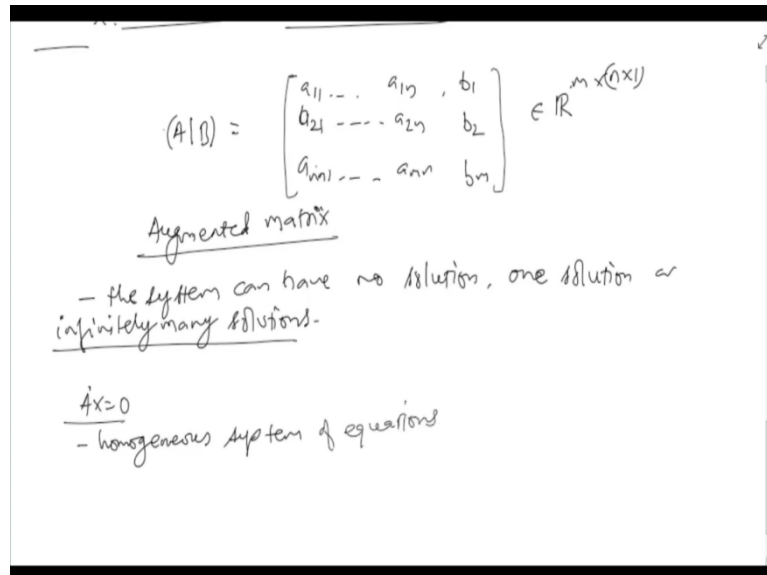 (A|B) = [ a11 .... a1n , b1
a21 ----- a2n b2
am1 --- . amn bm ] ∈ ℝ^m×(n×1)
Augmented matrix
- the system can have no solution, one solution or
infinitely many solutions.
AX=0
- homogeneous system of equations